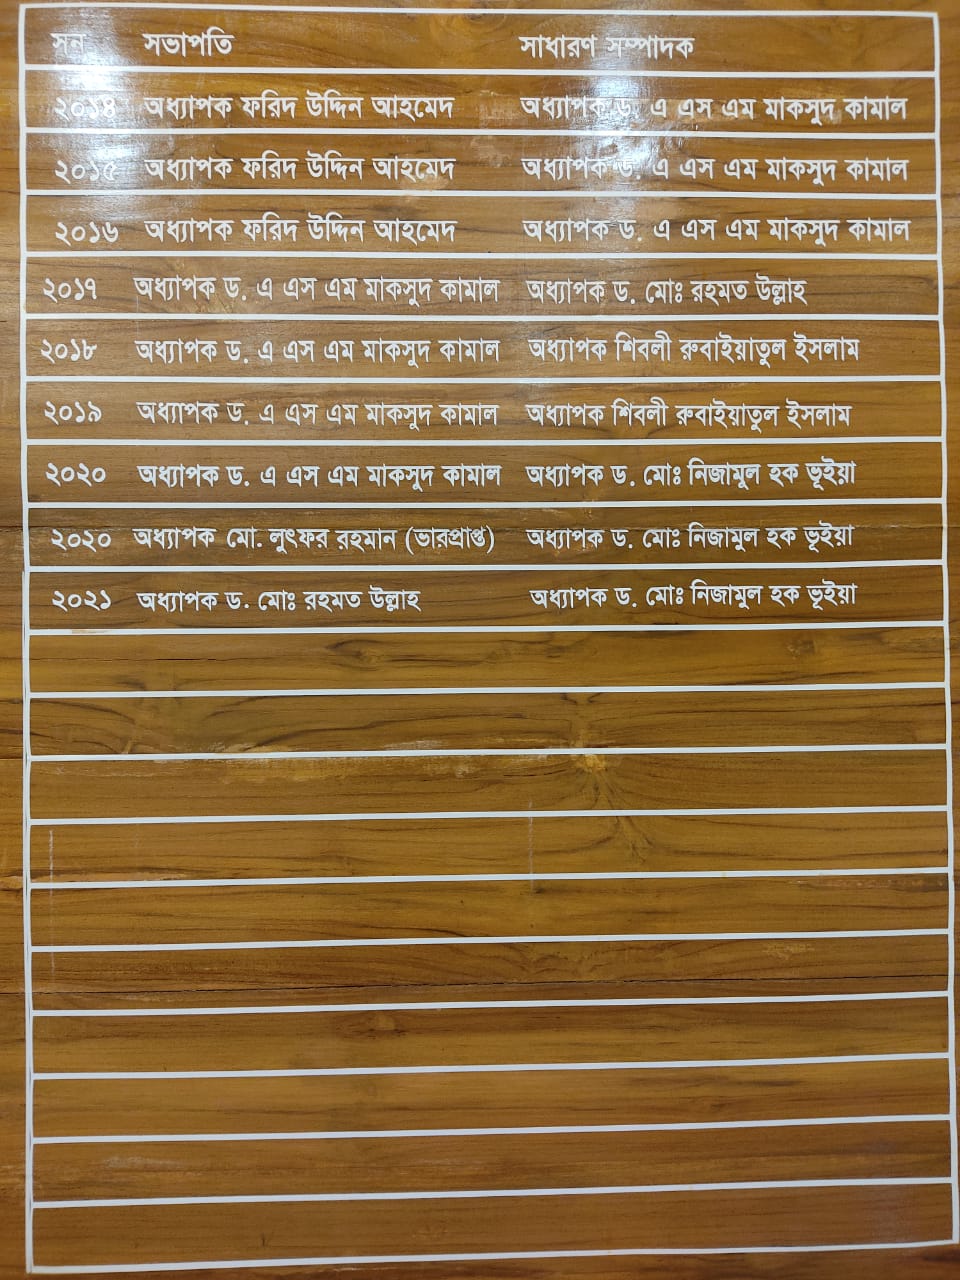 সন সভাপতি সাধারণ সম্পাদক
২০১৪ অধ্যাপক ফরিদ উদ্দিন আহমেদ অধ্যাপক ড. এ এস এম মাকসুদ কামাল
২০১৫ অধ্যাপক ফরিদ উদ্দিন আহমেদ অধ্যাপক ড. এ এস এম মাকসুদ কামাল
২০১৬ অধ্যাপক ফরিদ উদ্দিন আহমেদ অধ্যাপক ড. এ এস এম মাকসুদ কামাল
২০১৭ অধ্যাপক ড. এ এস এম মাকসুদ কামাল অধ্যাপক ড. মোঃ রহমত উল্লাহ
২০১৮ অধ্যাপক ড. এ এস এম মাকসুদ কামাল অধ্যাপক শিবলী রুবাইয়াতুল ইসলাম
২০১৯ অধ্যাপক ড. এ এস এম মাকসুদ কামাল অধ্যাপক শিবলী রুবাইয়াতুল ইসলাম
২০২০ অধ্যাপক ড. এ এস এম মাকসুদ কামাল অধ্যাপক ড. মোঃ নিজামুল হক ভূইয়া
২০২০ অধ্যাপক মো. লুৎফর রহমান (ভারপ্রাপ্ত) অধ্যাপক ড. মোঃ নিজামুল হক ভূইয়া
২০২১ অধ্যাপক ড. মোঃ রহমত উল্লাহ অধ্যাপক ড. মোঃ নিজামুল হক ভূইয়া